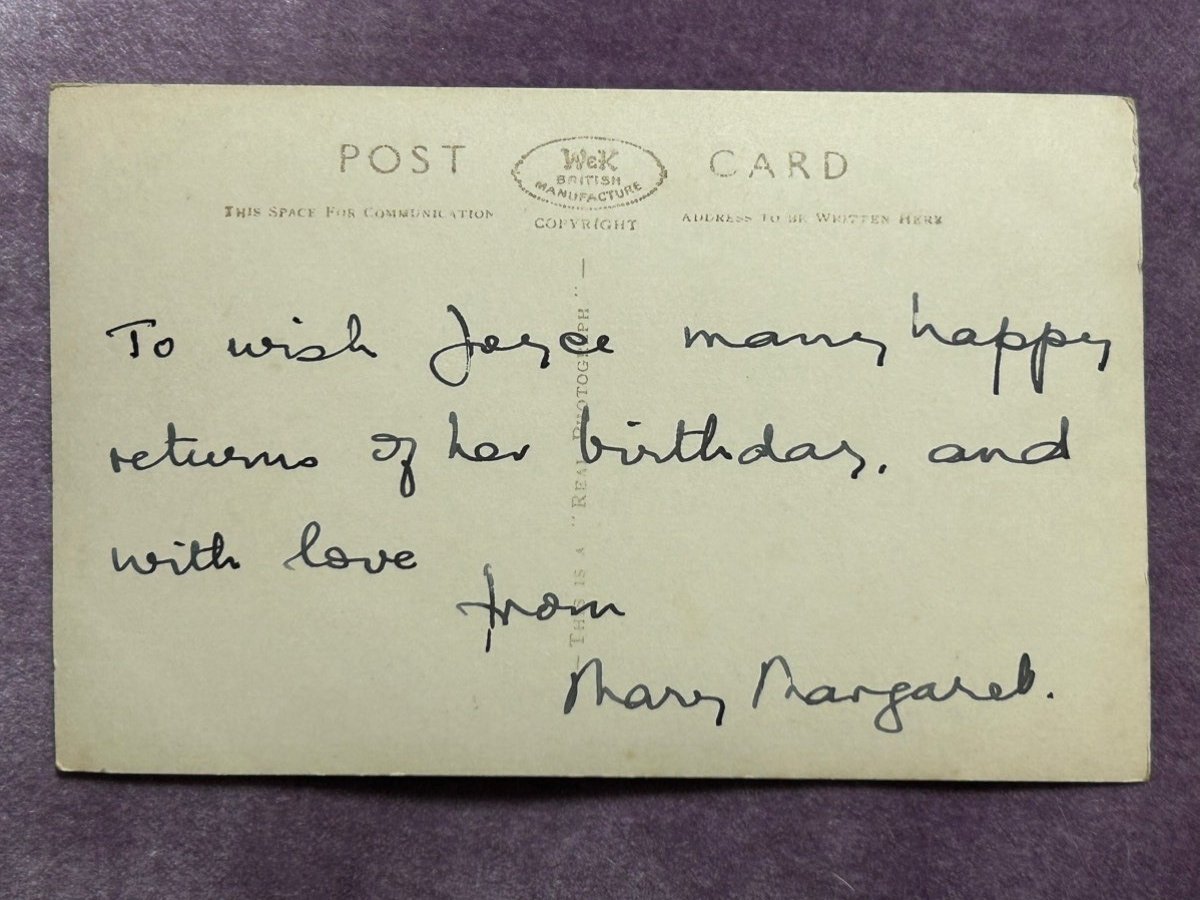 POST CARD
W&K
BRITISH
MANUFACTURE
THIS SPACE FOR COMMUNICATION
COPYRIGHT
ADDRESS TO BE WRITTEN HERE
THIS IS A "REAL PHOTOGRAPH"
To wish Joyce many happy
returns of her birthday, and
with love
from
Mary Margaret.